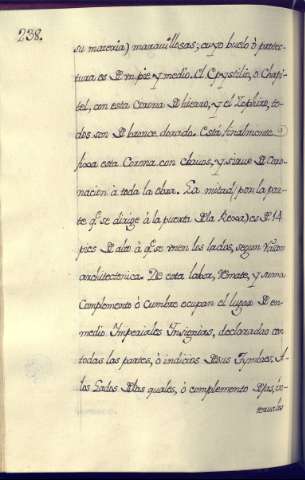 238.
su materia) maravillosas; cuyo buelo ó protec-
tura es D un pie y medio. El Epystilio, ó Chapi-
tel, con esta Corona D hierro, y el Zophoro, to-
dos son D bronce dorado. Está finalmente
fixa esta Corona con clavos, y sirve D Coro-
nacion à toda la obra. La mitad (por la par-
te q.e se dirige à la puerta D la Rexa) es D 14
pies D alto à q.e se unen los lados, segun Razon
architectonica. De esta labor, Remate, y summo
Complemento ó Cumbre ocupan el lugar D en-
medio Imperiales Insignias, declaradas con
todas las partes, ó indicios D sus Tymbres. A
los Lados D las quales, ó complemento D los, in-
tervalos